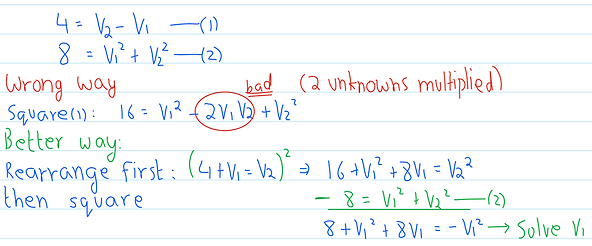 4 = V₂ - V₁ —(1)
8 = V₁² + V₂² —(2)
Wrong way bad (2 unknowns multiplied)
Square(1): 16 = V₁² - 2V₁V₂ + V₂²
Better way:
Rearrange first: (4+V₁=V₂)² ⇒ 16+V₁²+8V₁ = V₂²
then square - 8 = V₁² + V₂² —(2)
8+V₁²+8V₁ = -V₁² → Solve V₁